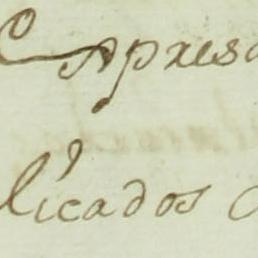 Apresa
licados